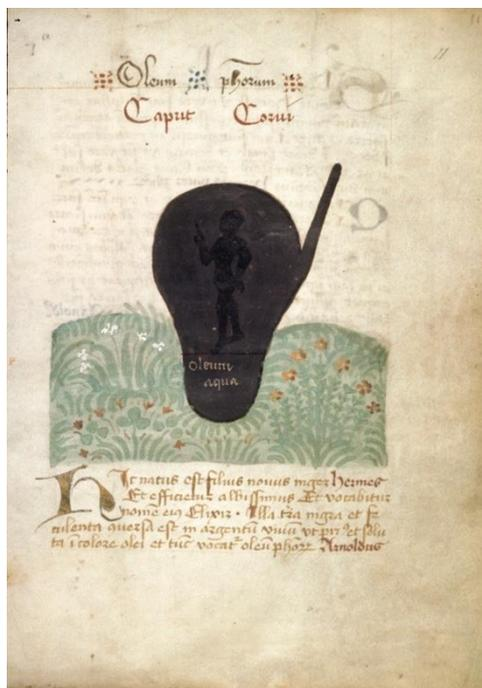 Oleum phorum
Caput Corui
oleum
aqua
Hic natus est filius nouus niger Hermes
Et efficietur albissimus Et vocabitur
nomē eiꝰ Elixir. Illa tr̄a nigra et fe
culenta auersa est in argentū viuū vt et solu
ta ī colore olei et tūc vocat oleū phorꝝ Arnoldus
11